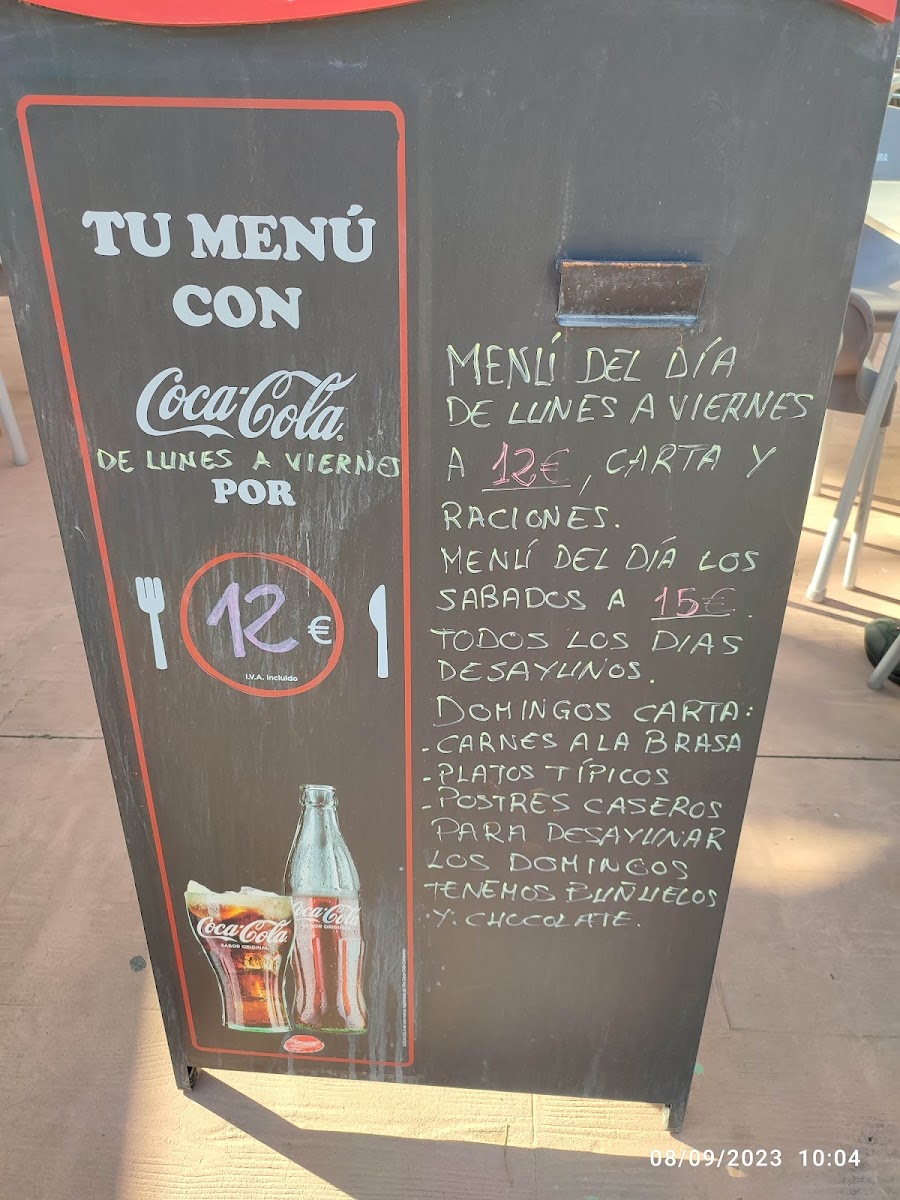 TU MENÚ
CON
Coca-Cola
DE LUNES A VIERNES
POR
12 €
I.V.A. incluido
Coca-Cola
SABOR ORIGINAL
Coca-Cola
SABOR ORIGINAL
MENÚ DEL DÍA
DE LUNES A VIERNES
A 12€, CARTA Y
RACIONES.
MENÚ DEL DÍA LOS
SABADOS A 15€.
TODOS LOS DIAS
DESAYUNOS.
DOMINGOS CARTA:
- CARNES A LA BRASA
- PLATOS TÍPICOS
- POSTRES CASEROS
PARA DESAYUNAR
LOS DOMINGOS
TENEMOS BUÑUELOS
Y CHOCOLATE.
08/09/2023 10:04